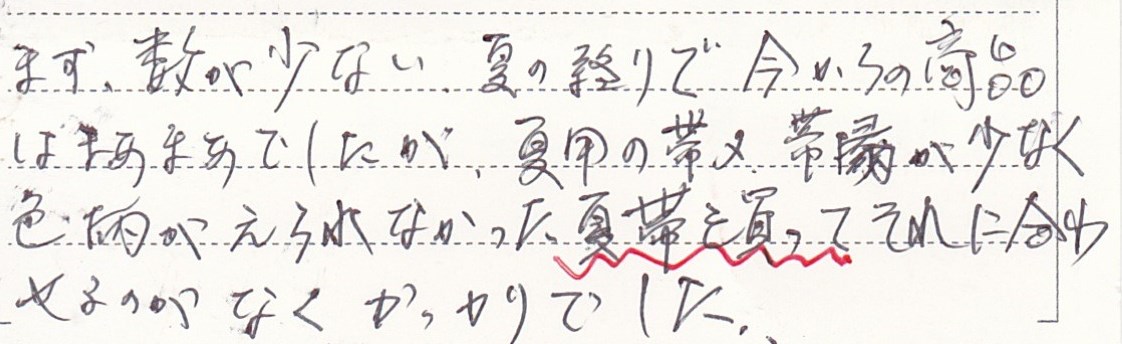 まず、数が少ない、夏の終りで今からの商品
はまあまあでしたが、夏用の帯〆 帯揚が少なく
色・柄がえらべれなかった、夏帯を買ってそれに合わ
せるのがなくがっかりでした、